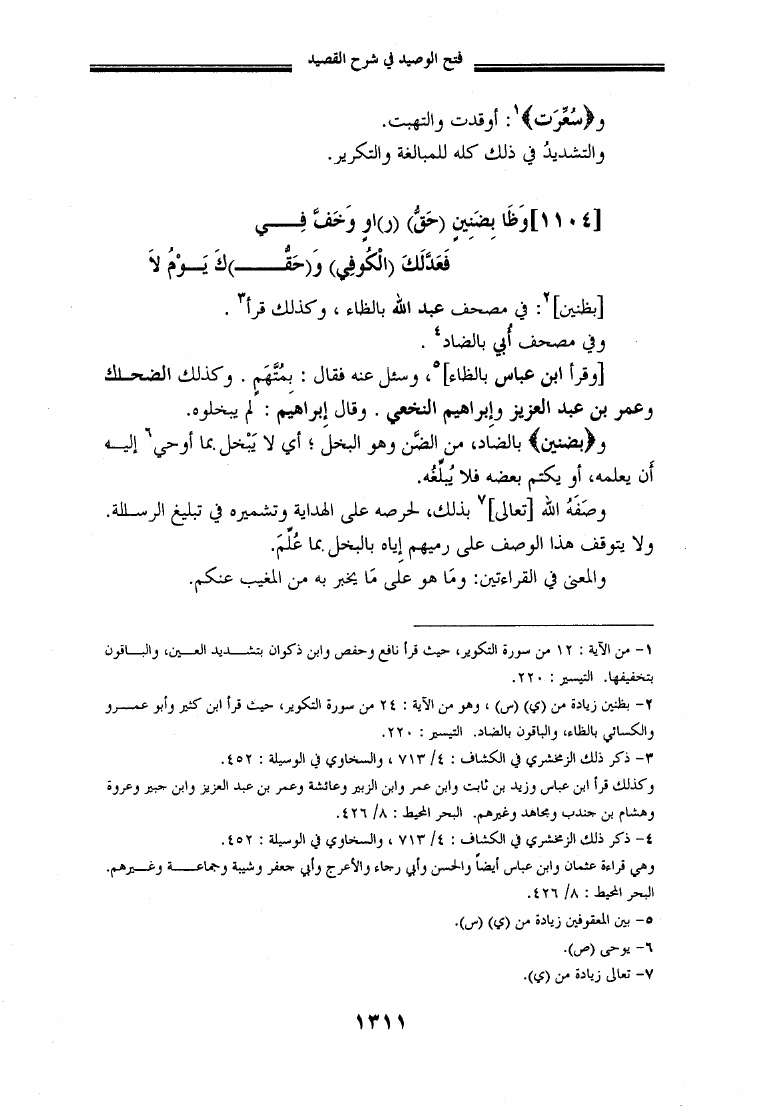 فتح الوصيد في شرح القصيد
و﴿سُعِّرَت﴾١: أوقدت والتهبت.
والتشديدُ في ذلك كله للمبالغة والتكرير.
[١١٠٤] وَظَا بِضَنِينٍ (حَقُّ) (رَ)اوٍ وَخَفَّ فِـــي
فَعَدَّلَكَ (الْكُوفِي) وَ(حَقُّـــــ)ـكَ يَـــوْمُ لاَ
[بظنين]٢: في مصحف عبد الله بالظاء ، وكذلك قرأ٣ .
وفي مصحف أُبي بالضاد٤ .
[وقرأ ابن عباس بالظاء]٥، وسئل عنه فقال : بِمُتَّهَمٍ . وكذلك الضحـاك
وعمر بن عبد العزيز وإبراهيم النخعي . وقال إبراهيم : لم يبخلوه.
و﴿بضنين﴾ بالضاد، من الضَّن وهو البخل ؛ أي لا يَبْخل بما أوحي٦ إليـه
أن يعلمه، أو يكتم بعضه فلا يُبلِّغُه.
وصَفَهُ الله [تعالى]٧ بذلك، لحرصه على الهداية وتشميره في تبليغ الرسـالة.
ولا يتوقف هذا الوصف على رميهم إياه بالبخل بما عُلِّمَ.
والمعنى في القراءتين: ومَا هو على مَا يخبر به من المغيب عنكم.
١- من الآية : ١٢ من سورة التكوير، حيث قرأ نافع وحفص وابن ذكوان بتشـــديد العـــين، والبـــاقون
بتخفيفها. التيسير : ٢٢٠.
٢- بظنين زيادة من (ي) (س) ، وهو من الآية : ٢٤ من سورة التكوير، حيث قرأ ابن كثير وأبو عمـــرو
والكسائي بالظاء، والباقون بالضاد. التيسير : ٢٢٠.
٣- ذكر ذلك الزمخشري في الكشاف : ٤/ ٧١٣ ، والسخاوي في الوسيلة : ٤٥٢.
وكذلك قرأ ابن عباس وزيد بن ثابت وابن عمر وابن الزبير وعائشة وعمر بن عبد العزيز وابن جبير وعروة
وهشام بن جندب ومجاهد وغيرهم. البحر المحيط : ٨/ ٤٢٦.
٤- ذكر ذلك الزمخشري في الكشاف : ٤/ ٧١٣ ، والسخاوي في الوسيلة : ٤٥٢.
وهي قراءة عثمان وابن عباس أيضاً والحسن وأبي رجاء والأعرج وأبي جعفر وشيبة وجماعـــة وغـــيرهم.
البحر المحيط : ٨/ ٤٢٦.
٥- بين المعقوفين زيادة من (ي) (س).
٦- يوحى (ص).
٧- تعالى زيادة من (ي).
١٣١١